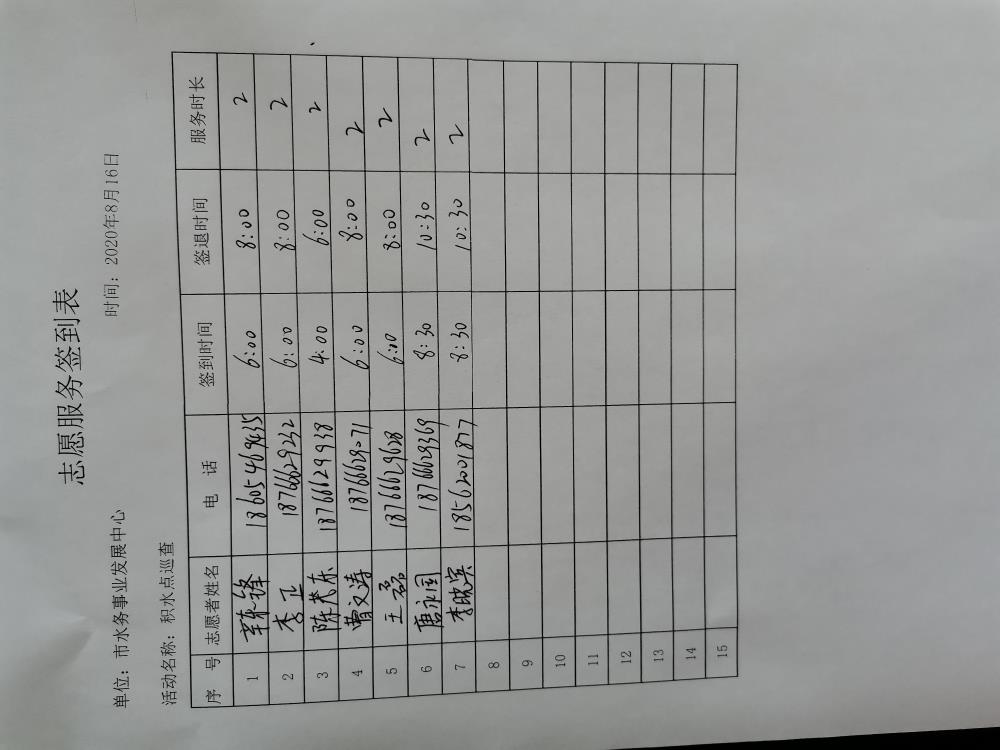 志愿服务签到表
单位：市水务事业发展中心 时间：2020年8月16日
活动名称：积水点巡查
序 号 志愿者姓名 电 话 签到时间 签退时间 服务时长
1 18605469435 6:00 8:00 2
2 李卫 18766629232 6:00 8:00 2
3 陈荣东 18766629938 4:00 6:00 2
4 曹文涛 18766629071 6:00 8:00 2
5 王磊 18766629628 6:00 8:00 2
6 唐永国 18766629369 8:30 10:30 2
7 李晓宾 18562001877 8:30 10:30 2
8
9
10
11
12
13
14
15